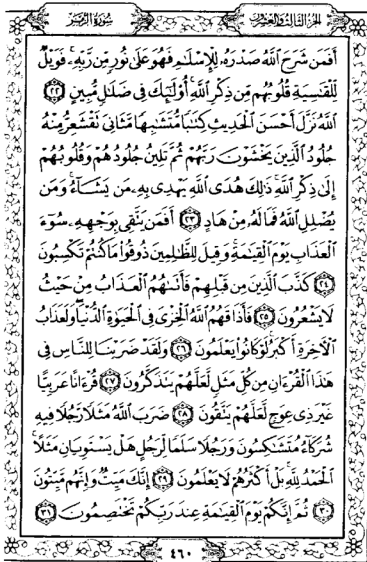 الجزء الثالث والعشرون سورة الزمر
أَفَمَن شَرَحَ ٱللَّهُ صَدْرَهُۥ لِلْإِسْلَٰمِ فَهُوَ عَلَىٰ نُورٍ مِّن رَّبِّهِۦ ۚ فَوَيْلٌ
لِّلْقَٰسِيَةِ قُلُوبُهُم مِّن ذِكْرِ ٱللَّهِ ۚ أُو۟لَٰٓئِكَ فِى ضَلَٰلٍ مُّبِينٍ ٢٢
ٱللَّهُ نَزَّلَ أَحْسَنَ ٱلْحَدِيثِ كِتَٰبًا مُّتَشَٰبِهًا مَّثَانِىَ تَقْشَعِرُّ مِنْهُ
جُلُودُ ٱلَّذِينَ يَخْشَوْنَ رَبَّهُمْ ثُمَّ تَلِينُ جُلُودُهُمْ وَقُلُوبُهُمْ
إِلَىٰ ذِكْرِ ٱللَّهِ ۚ ذَٰلِكَ هُدَى ٱللَّهِ يَهْدِى بِهِۦ مَن يَشَآءُ ۚ وَمَن
يُضْلِلِ ٱللَّهُ فَمَا لَهُۥ مِنْ هَادٍ ٢٣ أَفَمَن يَتَّقِى بِوَجْهِهِۦ سُوٓءَ
ٱلْعَذَابِ يَوْمَ ٱلْقِيَٰمَةِ ۚ وَقِيلَ لِلظَّٰلِمِينَ ذُوقُوا۟ مَا كُنتُمْ تَكْسِبُونَ
٢٤ كَذَّبَ ٱلَّذِينَ مِن قَبْلِهِمْ فَأَتَىٰهُمُ ٱلْعَذَابُ مِنْ حَيْثُ
لَا يَشْعُرُونَ ٢٥ فَأَذَاقَهُمُ ٱللَّهُ ٱلْخِزْىَ فِى ٱلْحَيَوٰةِ ٱلدُّنْيَا ۖ وَلَعَذَابُ
ٱلْءَاخِرَةِ أَكْبَرُ ۚ لَوْ كَانُوا۟ يَعْلَمُونَ ٢٦ وَلَقَدْ ضَرَبْنَا لِلنَّاسِ فِى
هَٰذَا ٱلْقُرْءَانِ مِن كُلِّ مَثَلٍ لَّعَلَّهُمْ يَتَذَكَّرُونَ ٢٧ قُرْءَانًا عَرَبِيًّا
غَيْرَ ذِى عِوَجٍ لَّعَلَّهُمْ يَتَّقُونَ ٢٨ ضَرَبَ ٱللَّهُ مَثَلًا رَّجُلًا فِيهِ
شُرَكَآءُ مُتَشَٰكِسُونَ وَرَجُلًا سَلَمًا لِّرَجُلٍ هَلْ يَسْتَوِيَانِ مَثَلًا ۚ
ٱلْحَمْدُ لِلَّهِ ۚ بَلْ أَكْثَرُهُمْ لَا يَعْلَمُونَ ٢٩ إِنَّكَ مَيِّتٌ وَإِنَّهُم مَّيِّتُونَ
٣٠ ثُمَّ إِنَّكُمْ يَوْمَ ٱلْقِيَٰمَةِ عِندَ رَبِّكُمْ تَخْتَصِمُونَ ٣١
٤٦٠